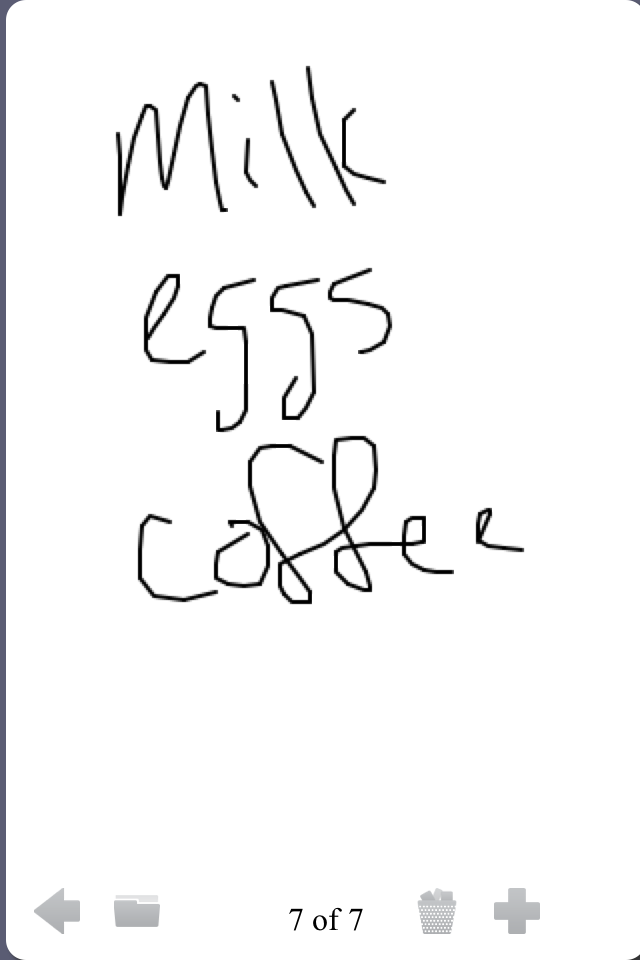 Milk
eggs
coffee
7 of 7